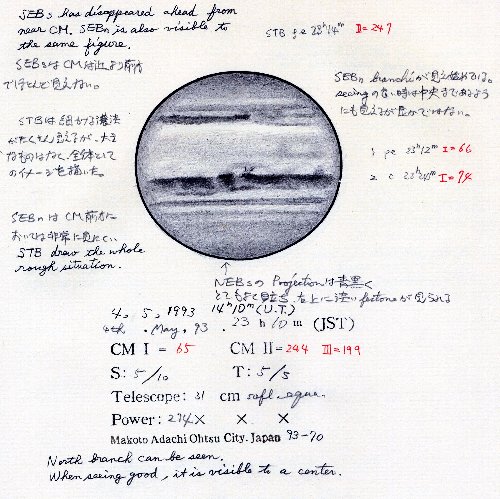 SEBs has disappeared ahead from
near CM. SEBn is also visible to
the same figure.
SEBsはCM付近より前方
でほとんど見えない。
STBは細かな濃淡
がたくさん見えるが、大き
なものはなく、全体として
のイメージを描いた。
SEBnはCM前方に
おいては非常に見にくい。
STB drew the whole
rough situation.
STB f e 23h14m II=247
SEBn branchが見え
seeingの 時は中央まであるよう
にも見えるが ではない。
1 p c 23h12m I=66
2 c 23h24m I=74
↑
NEBsのProjectionは青黒く
とてもよく目立つ、左上に淡いfestoonが見られる
4, 5, 1993 14h10m(U.T.)
4th . May, 93. 23 h 10 m (JST)
CM I = 65 CM II=244 III=199
S: 5/10 T: 5/5
Telescope: 31 cm refl.
Power: 274X X X
Makoto Adachi Ohtsu City. Japan 93-70
North branch can be seen.
When seeing good, it is visible to a center.